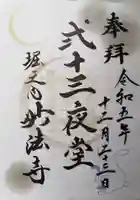 奉拝
令和五年
十二月二十三日
弐十三夜堂
堀之内
妙法寺